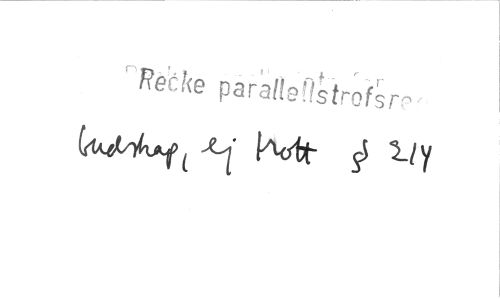 Recke parallellstrofsre
budskap, ej trott § 214